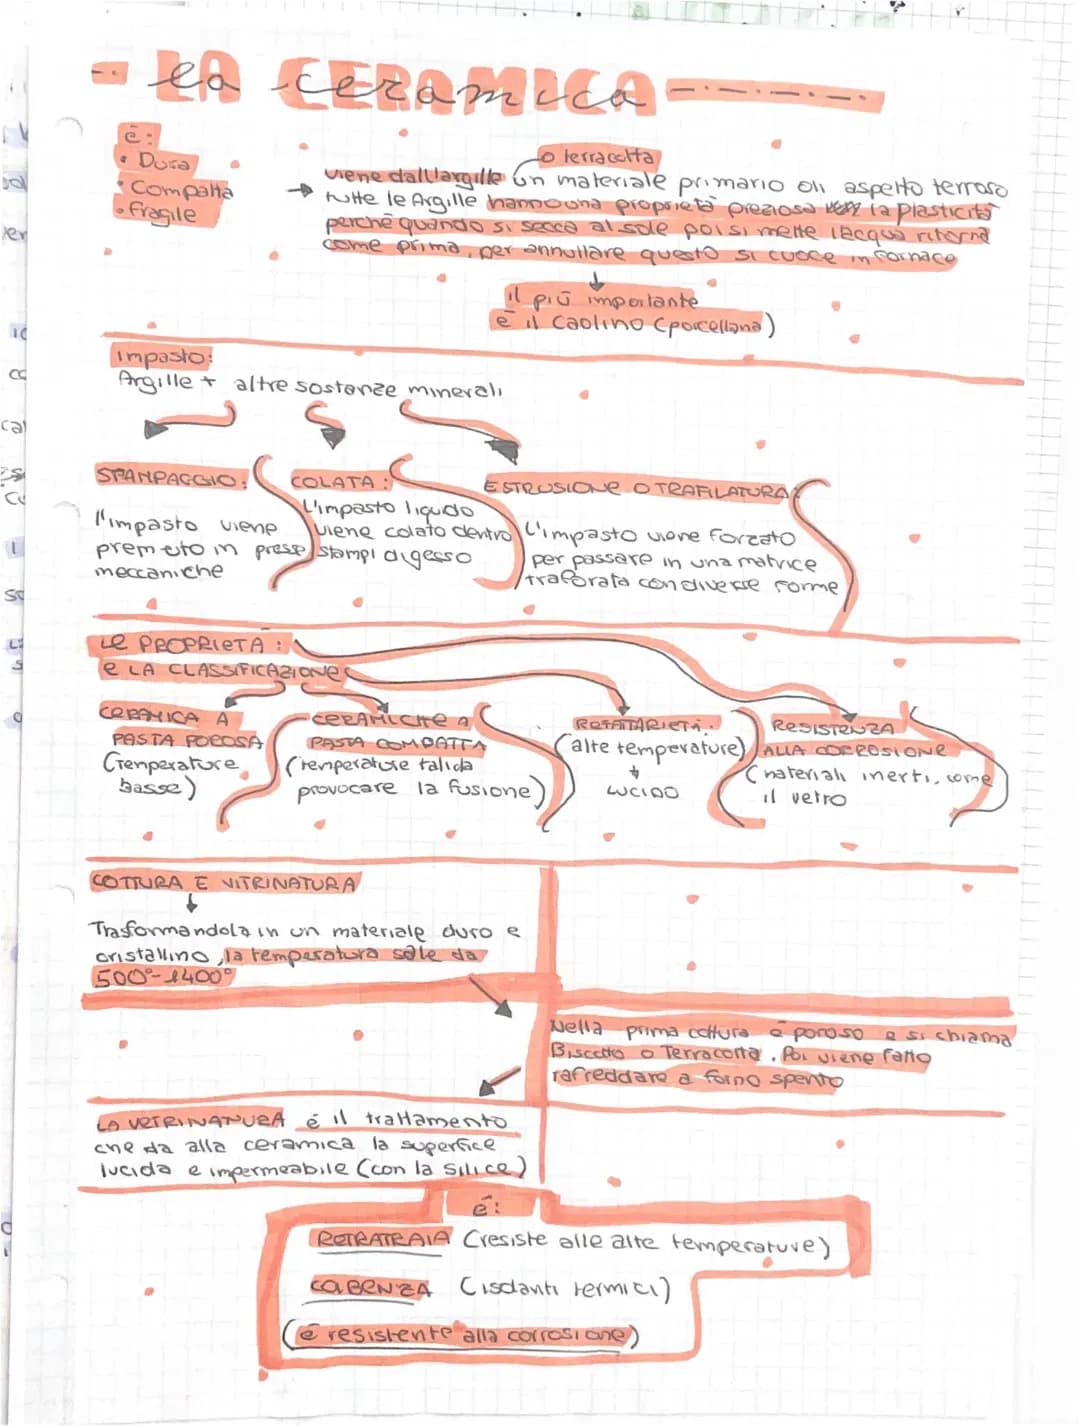 la CERAMICA
é:
• Dura
• Compatta
• fragile
o terracotta
viene dall'argille un materiale primario di aspetto terroso
tutte le Argille hanno una proprietà preziosa la plasticità
perché quando si secca al sole poi si mette l'acqua ritorna
come prima, per annullare questo si cuoce in fornace
il più importante
è il Caolino (porcellana)
impasto:
Argille + altre sostanze minerali
STAMPAGGIO:
l'impasto viene
premuto in presse
meccaniche
COLATA:
L'impasto liquido
viene colato dentro
stampi di gesso
ESTRUSIONE O TRAFILATURA
L'impasto viene forzato
per passare in una matrice
traforata con diverse forme
Le PROPRIETÀ:
e LA CLASSIFICAZIONE
CERAMICA A
PASTA POROSA
(Temperature
basse)
CERAMICHE A
PASTA COMPATTA
(temperature talida
provocare la fusione)
REFATARIETÀ.
(alte temperature)
LUCIDO
RESISTENZA
ALLA CORROSIONE
(materiali inerti, come
il vetro
COTTURA E VITRINATURA
Trasformandola in un materiale duro e
cristallino, la temperatura sale da
500°-1400°
Nella prima cottura è poroso e si chiama
Biscotto o Terracotta. Poi viene fatto
rafreddare a forno spento
LA VETRINATURA é il trattamento
che da alla ceramica la superfice
lucida e impermeabile (con la silice)
é:
RETRATRAIA (resiste alle alte temperature)
COBENZA (isolanti termici)
(é resistente alla corrosione)